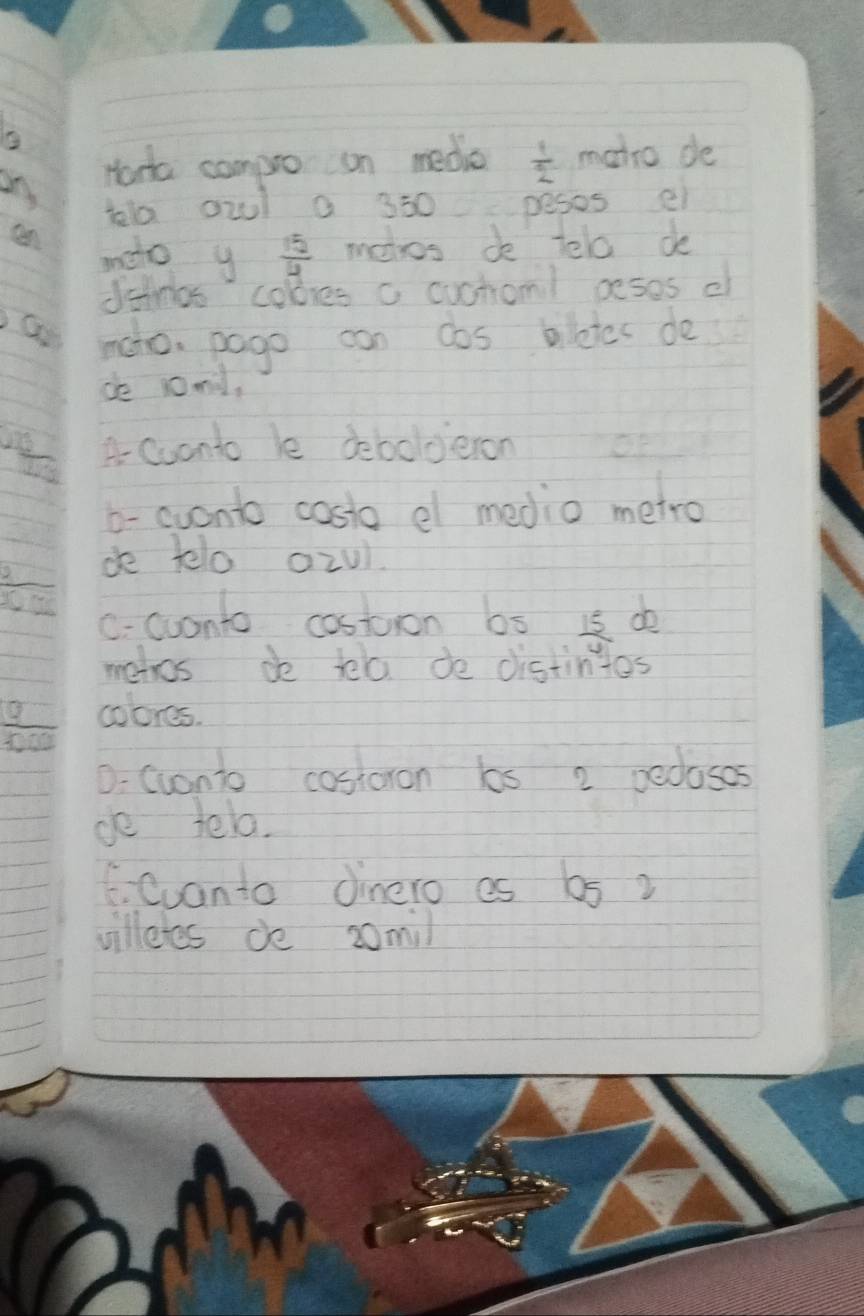 Marta compro un medio 1/2 metro de
tela azul a 350 pesos el
metro y 15/4 metros de tela de
distintos colores a cuatromil pesos el
metro. pago con dos billetes de
de 10mil.
A- Cuanto le debolbieron
b- cuanto costo el medio metro
de tela azul.
C- Cuanto costaron los 15/4 de
metros de tela de distintos
colores.
D- Cuanto costaron los 2 pedasos
de tela.
E. Cuanto dinero es los 2
villetes de 20mil